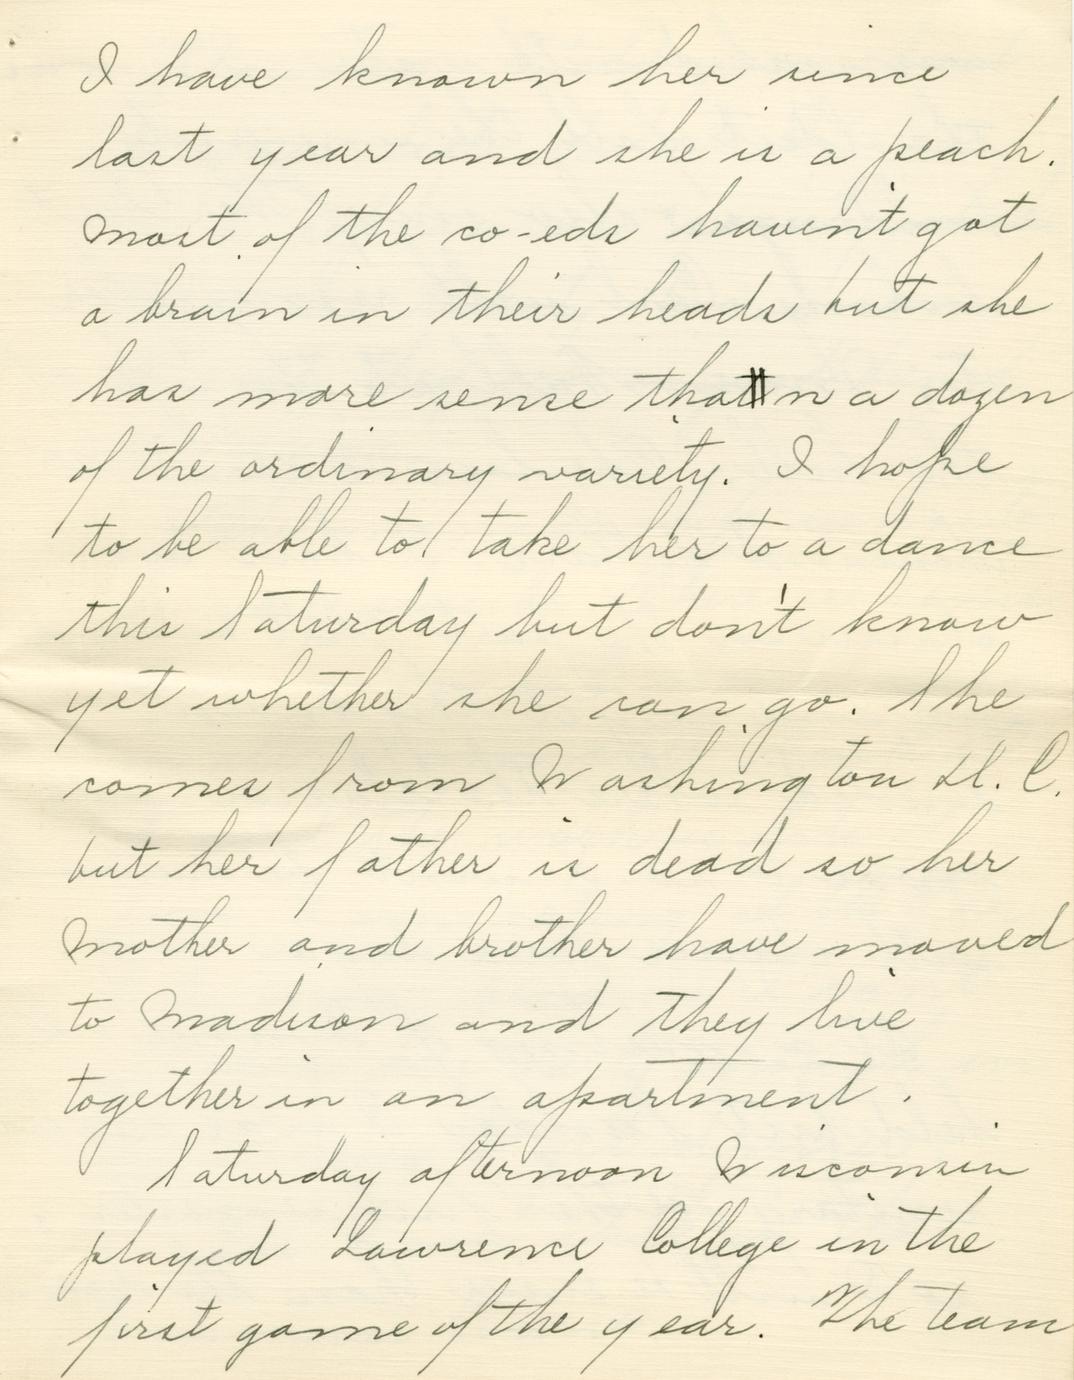 I have known her since
last year and she is a peach.
Most of the co-eds haven't got
a brain in their heads but she
has more sense than a dozen
of the ordinary variety. I hope
to be able to take her to a dance
this Saturday but don't know
yet whether she can go. She
comes from Washington D.C.
but her father is dead so her
mother and brother have moved
to Madison and they live
together in an apartment.
Saturday afternoon Wisconsin
played Lawrence College in the
first game of the year. The team